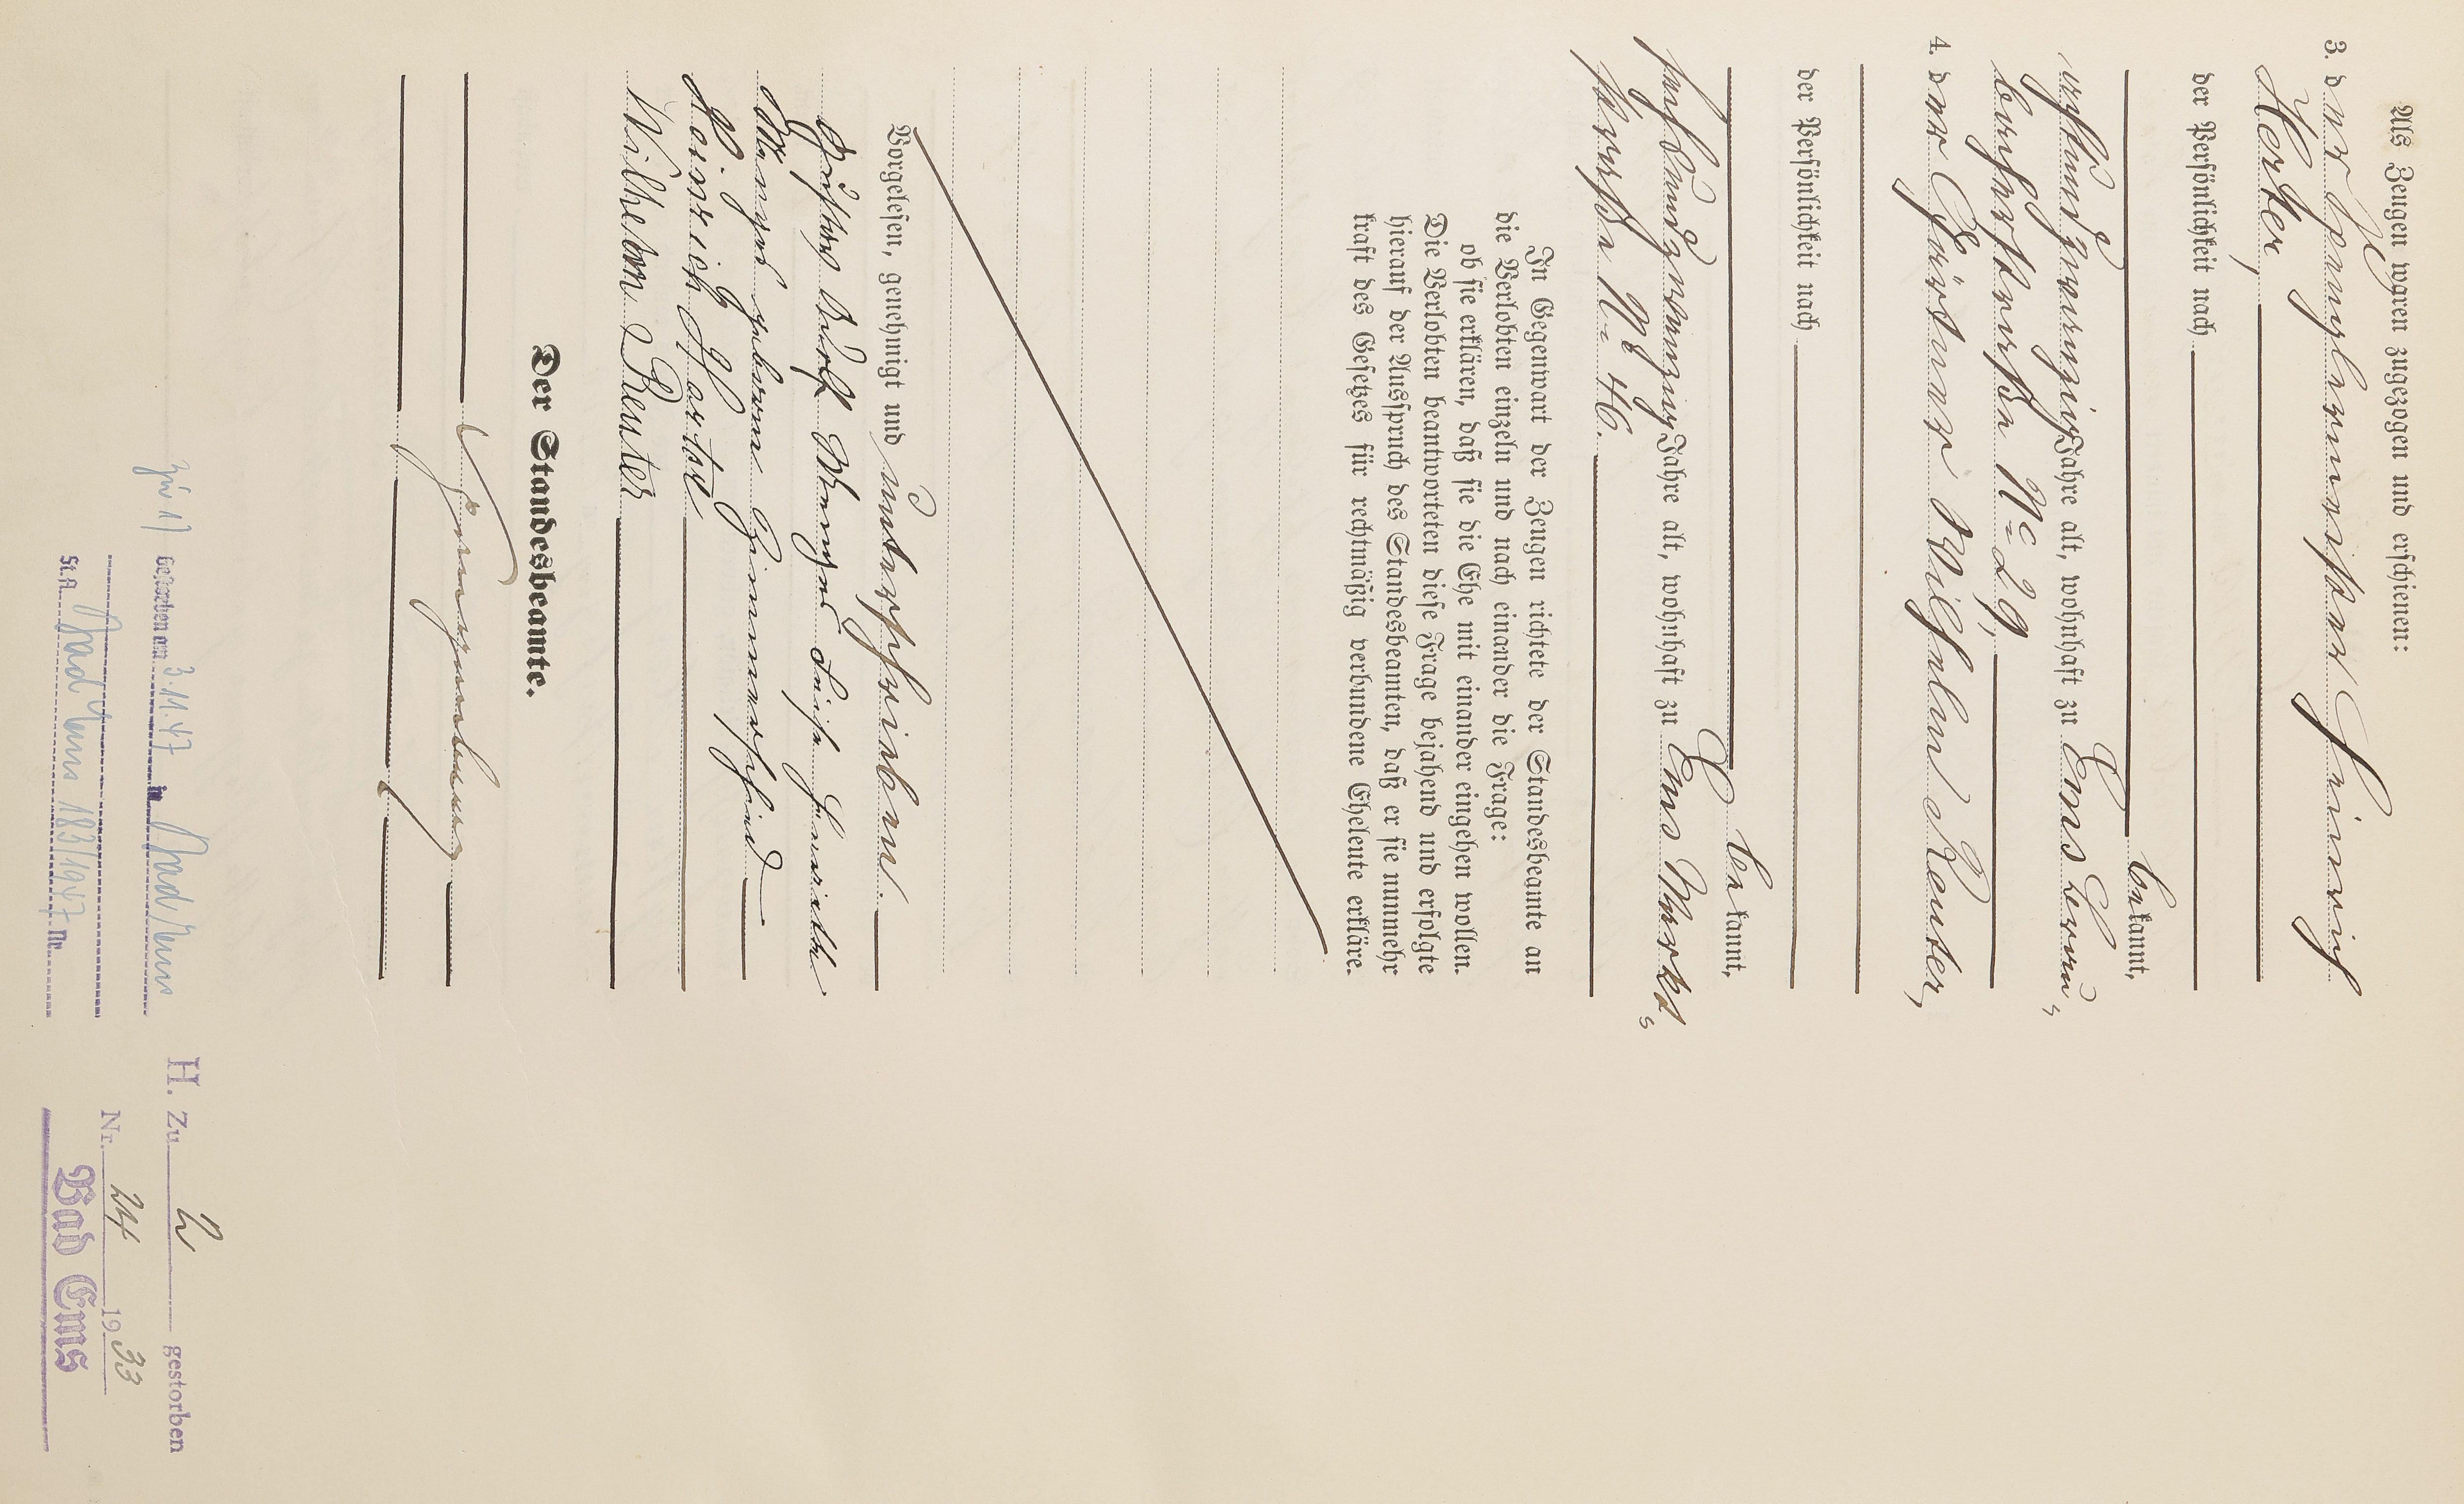 Als Zeugen waren zugezogen und erschienen:
3. der Spenglermeister Heinrich
Herter,
der Persönlichkeit nach
bekannt,
Jahre alt, wohnhaft zu Ems Lahn-
bergerstraße No 29,
4. der Gärtner Wilhelm Reuter,
der Persönlichkeit nach
bekannt,
sechsundzwanzig Jahre alt, wohnhaft zu Ems Markt-
straße No 46.
In Gegenwart der Zeugen richtete der Standesbeamte an
die Verlobten einzeln und nach einander die Frage:
ob sie erklären, daß sie die Ehe mit einander eingehen wollen.
Die Verlobten beantworteten diese Frage bejahend und erfolgte
hierauf der Ausspruch des Standesbeamten, daß er sie nunmehr
kraft des Gesetzes für rechtmäßig verbundene Eheleute erkläre.
Vorgelesen, genehmigt und unterschrieben.
Luise Henriette
geborene Zimmerschied
Heinrich Herter
Wilhelm Reuter
Der Standesbeamte.
zu 1) Gestorben am 3.11.47 in Bad Ems
St.A. Bad Ems 183/1947 Nr.
H. Zu 2 gestorben
Nr. 24 1933
Bad Ems